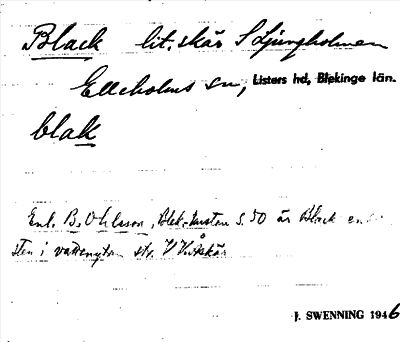 Black lit. skär S Ljungholmen
Elleholms sn, Listers hd, Blekinge län.
blak
Enl. B. Ohlsson, Blek. kusten s. 50 är Black en
sten i vattenytan str. V
J. SWENNING 1946